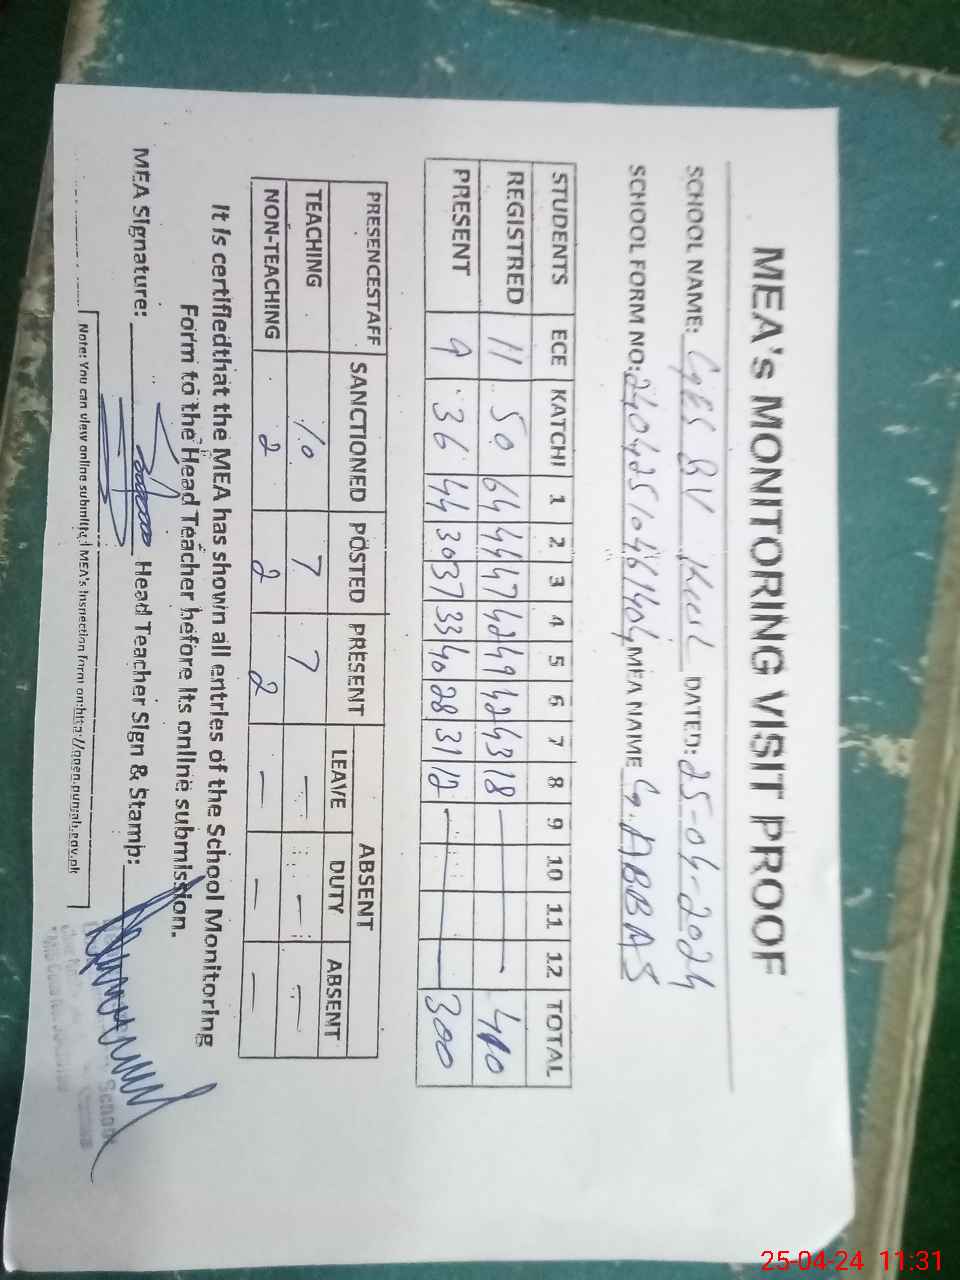 MEA's MONITORING VISIT PROOF
SCHOOL NAME: GGES BV DATED: 25-04-2024
SCHOOL FORM NO: MEA NAME G. ABBAS
STUDENTS ECE KATCHI 1 2 3 4 5 6 7 8 9 10 11 12 TOTAL
REGISTRED 11 50 64 44 47 42 49 42 43 18 — 410
PRESENT 9 36 44 30 37 33 40 28 31 12 — 300
PRESENCESTAFF SANCTIONED POSTED PRESENT ABSENT
LEAVE DUTY ABSENT
TEACHING 10 7 7 — — —
NON-TEACHING 2 2 2 — — —
It is certifiedthat the MEA has shown all entries of the School Monitoring
Form to the Head Teacher before its online submission.
MEA Signature: Head Teacher Sign & Stamp:
School
Note: You can view online submitted MEA's Inspection form on:http://open.punjab.gov.pk
25-04-24 11:31